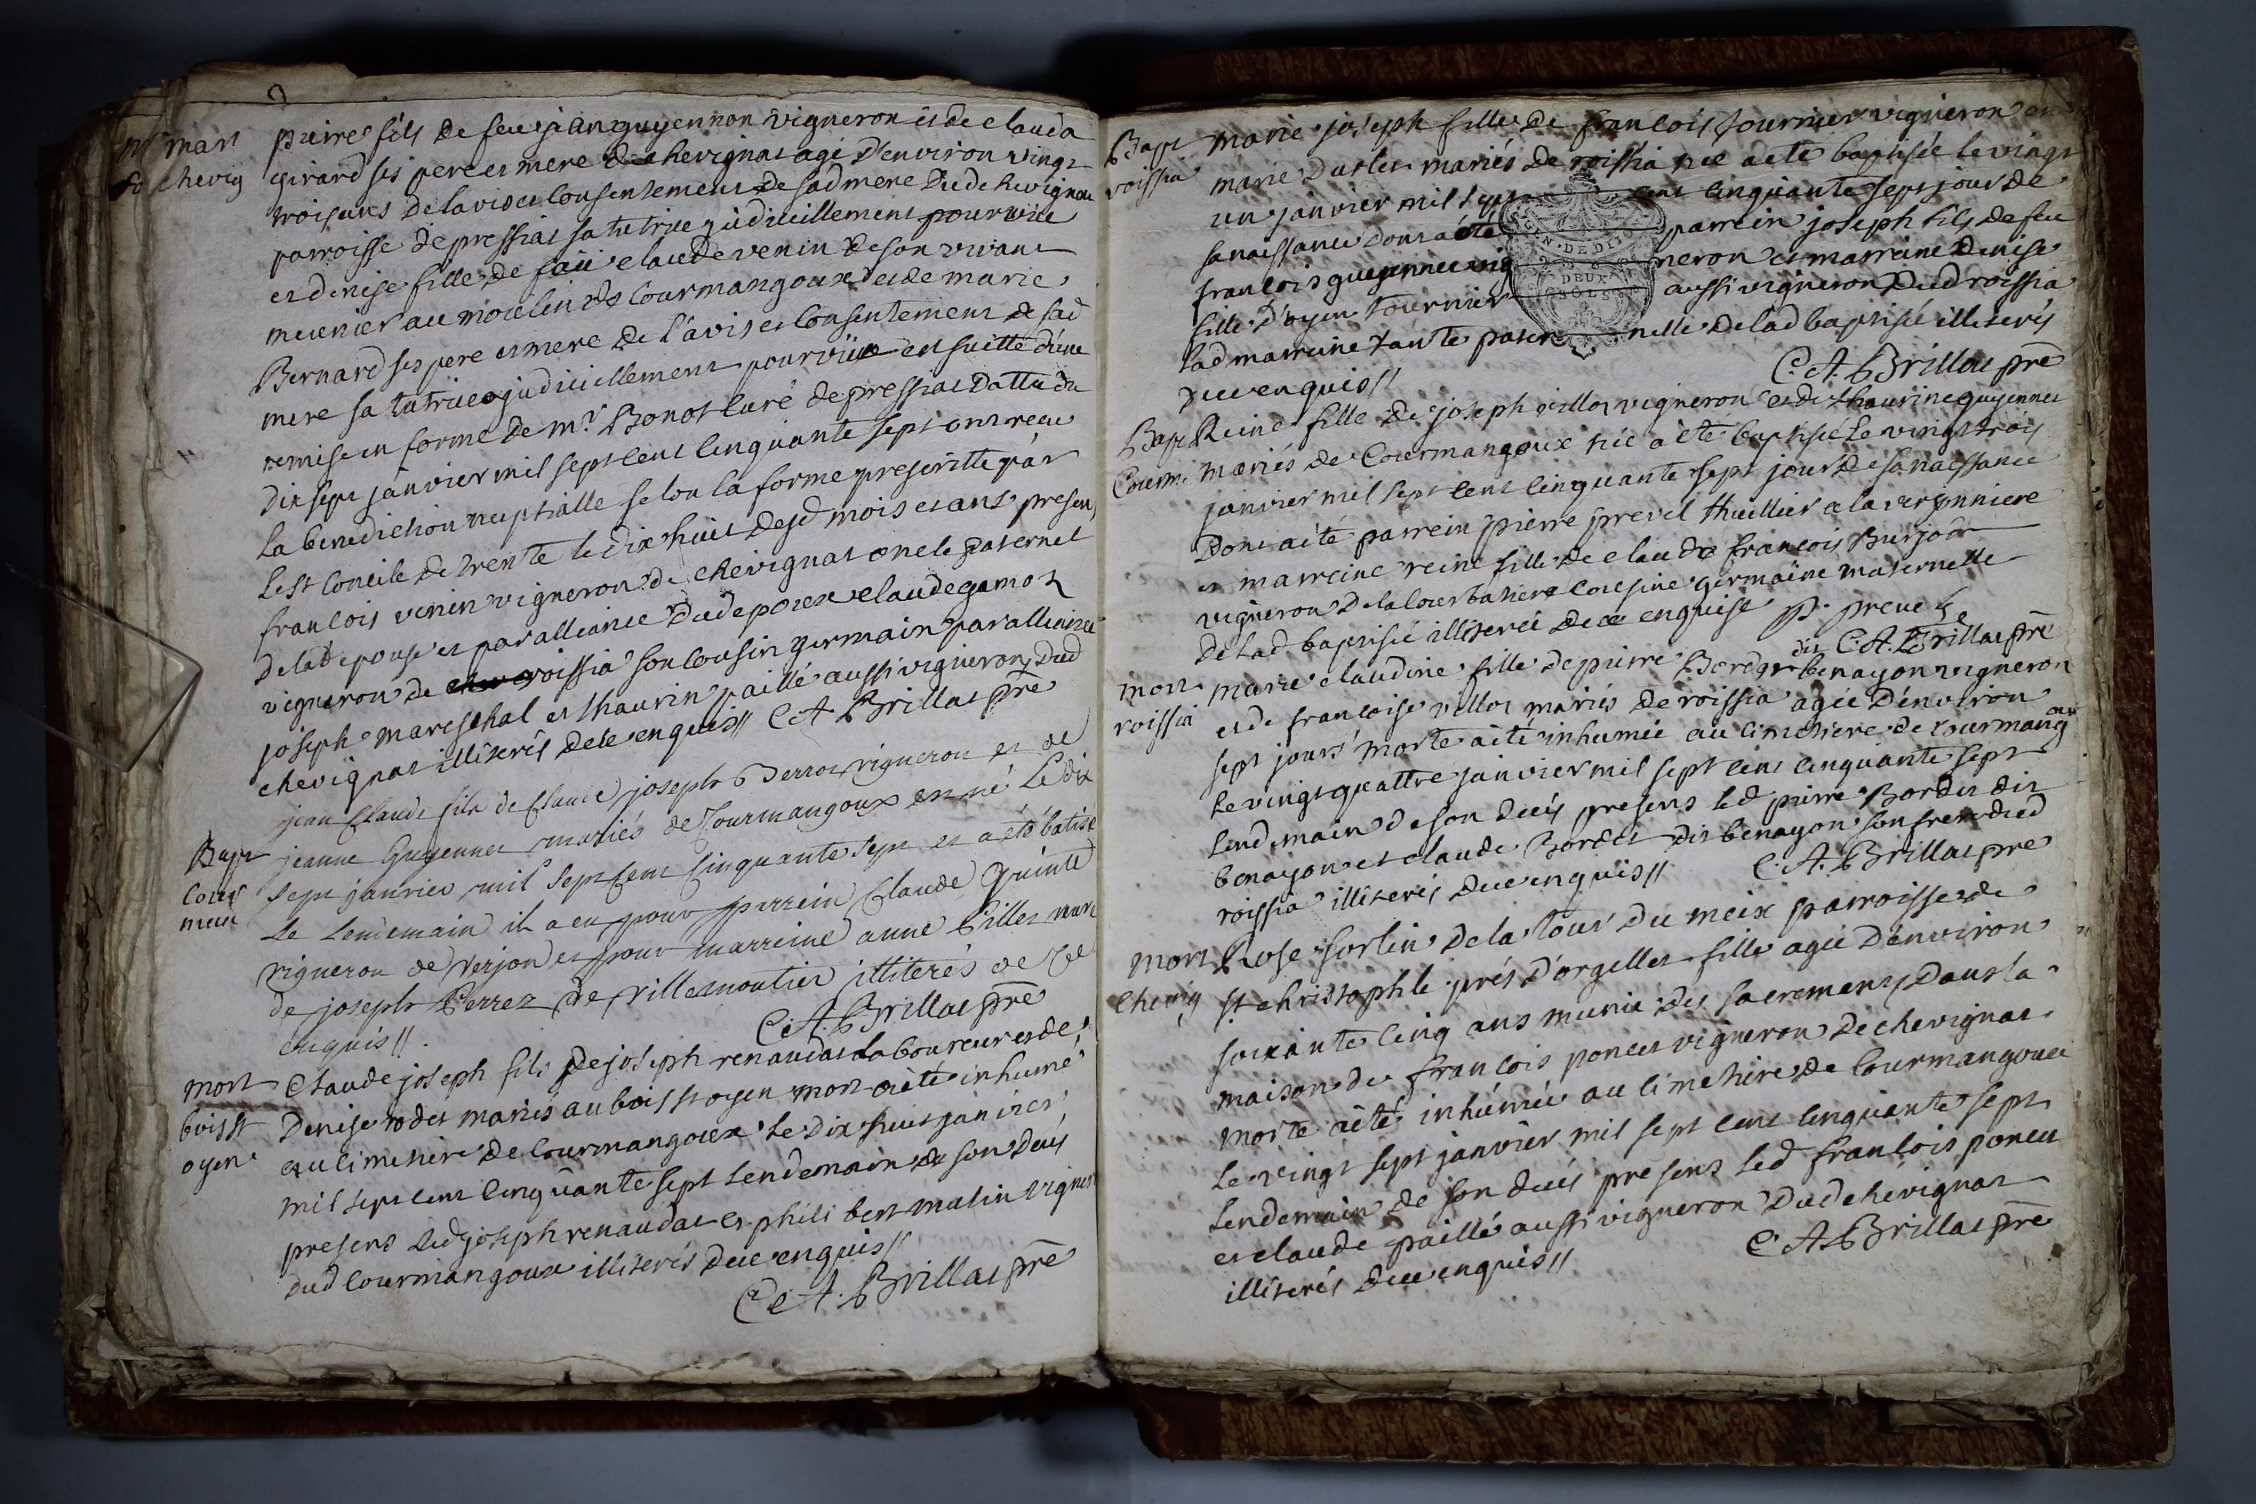 mari
chevig
pierre fils de feu jean guyennon vigneron et de clauda
girard ses pere et mere de chevignat agé d'environ vingt
trois ans de lavis et consentement de sad mere dud chevignat
parroisse de pressiat sa tutrice judiciellement pourvüe
et denise fille de feu claude venin de son vivant
meunier au moulin de Courmangoux et de marie
Bernard ses pere et mere de l'avis et consentement de sad
mere sa tutrice judiciellement pourvüe en suitte d'une
remise en forme de mr Bonot curé de pressiat datté du
dix sept janvier mil sept cent cinquante sept ont recu
la benediction nuptialle selon la forme prescritte par
le st concile de trente le dix huit desd mois et ans presens
francois venin vigneron de chevignat oncle paternel
de lad epouse et par alliance dud epoux claude gamot
vigneron de roissia son cousin germain par alliance
joseph mareschal et thaurin paillé aussi vignerons dud
chevignat illiterés de ce enquis // C A Brillat pre
Bapt
Cour
mān
jean Claude fils de Claude joseph Perrot vigneron et de
jeanne Guyennet mariés de Courmangoux est né Le dix
sept janvier mil sept cent cinquante sept et a eté batisé
Le Lendemain il a eu pour parrein Claude Quinté
vigneron de Verjon et pour marreine anne Pillet
de joseph Perrez de villemoutier illiterés de ce
enquis //. C. A. Brillat pre
mort
bois st
oyen
Claude joseph fils de joseph renaudat laboureur et de
Denise rodet mariés au bois st oyen mort a été inhumé
au cimetiere de Courmangoux le dix huit janvier
mil sept cent cinquante sept lendemain de son decés
presens led joseph renaudat et philibert matin vigneron
dud Courmangoux illiterés de ce enquis //
C. A. Brillat pre
Bapt
roissia
marie joseph fille de francois tournier vigneron et de
marie Dutlet mariés de roissia née a eté baptisée le vingt
un janvier mil sept cent cinquante sept jour de
sa naissance dont a eté parrein joseph fils de feu
francois guyennet vigneron et marreine denise
fille d'oyen tournier aussi vigneron dud roissia
lad marreine tante paternelle de lad baptisée illiterés
de ce enquis // C. A. Brillat pre
GEN. DE DIJON
DEUX
SOLS
Bapt
Courm.
Reine fille de joseph villot vigneron et de thaurine guyennet
mariés de Courmangoux née a eté baptisée le vingt trois
janvier mil sept cent cinquante sept jour de sa naissance
dont a eté parrein pierre prevel thuillier a la verjonniere
et marreine reine fille de claude francois Burjod
vigneron de la courbatiere cousine germaine maternelle
de lad baptisée illiterée de ce enquise p. prevel
C. A. Brillat pre
mort
roissia
marie claudine fille de pierre Bordet dit benayon vigneron
et de francoise villot mariés de roissia agée d'environ
sept jours morte a eté inhumée au cimetiere de Courmangoux
le vingt quattre janvier mil sept cent cinquante sept
lendemain de son decés presens led pierre Bordet dit
benayon et claude Bordet dit benayon son frere dud
roissia illiterés de ce enquis // C. A. Brillat pre
mort
Chevig
Rose sorlin de la tour du meix parroisse de
st christophle prés d'orgellet fille agée d'environ
soixante cinq ans munie des sacremens dans la
maison de francois poncet vigneron de chevignat
morte a eté inhumée au cimetiere de Courmangoux
le vingt sept janvier mil sept cent cinquante sept
lendemain de son decés presens led francois poncet
et claude paillé aussi vigneron dud chevignat
illiterés de ce enquis // C A Brillat pre